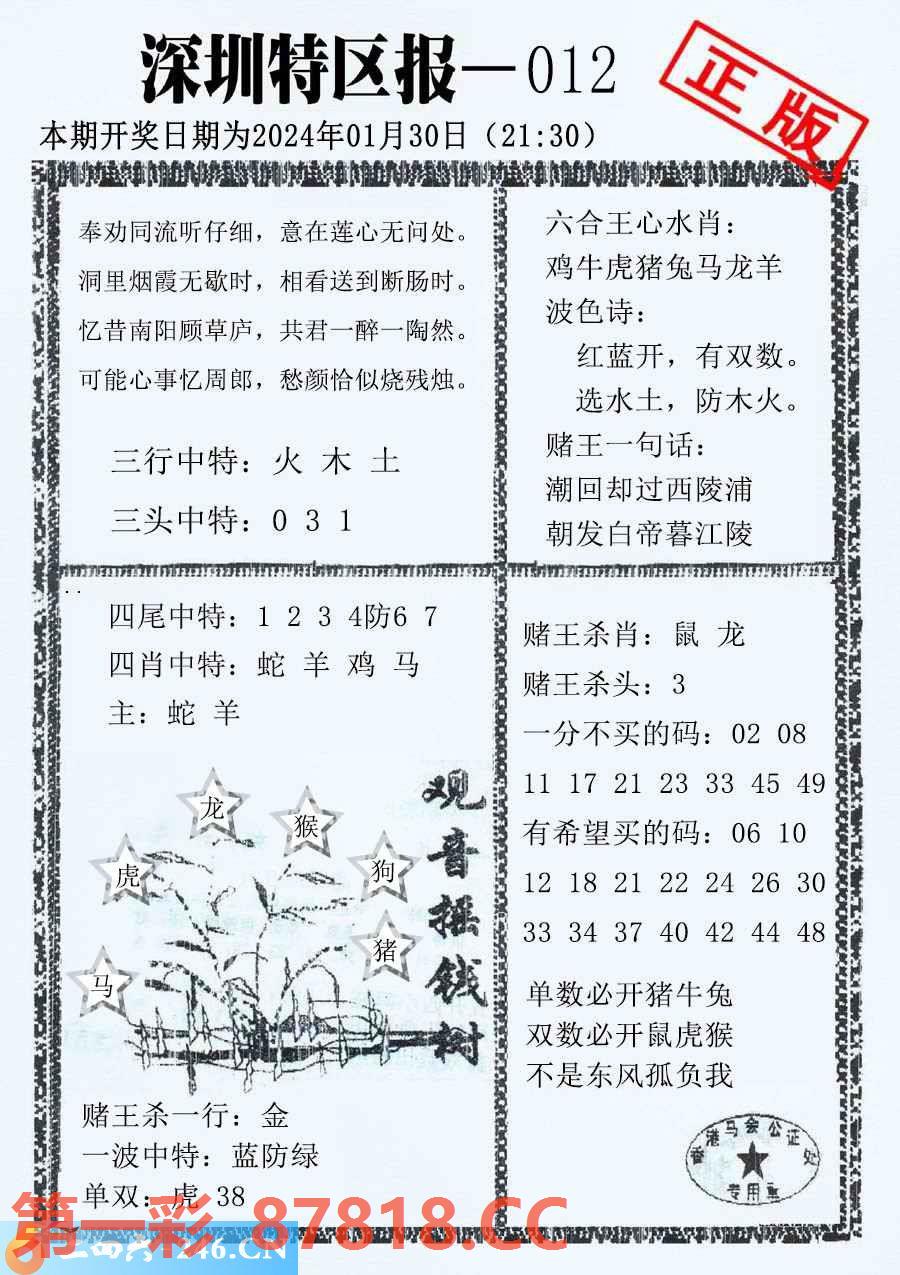 深圳特区报—012
正版
本期开奖日期为2024年01月30日（21:30）
奉劝同流听仔细，意在莲心无问处。
洞里烟霞无歇时，相看送到断肠时。
忆昔南阳顾草庐，共君一醉一陶然。
可能心事忆周郎，愁颜恰似烧残烛。
三行中特：火 木 土
三头中特：0 3 1
六合王心水肖：
鸡牛虎猪兔马龙羊
波色诗：
红蓝开，有双数。
选水土，防木火。
赌王一句话：
潮回却过西陵浦
朝发白帝暮江陵
四尾中特：1 2 3 4防6 7
四肖中特：蛇 羊 鸡 马
主：蛇 羊
观音摇钱树
龙
猴
虎
狗
猪
马
赌王杀一行：金
一波中特：蓝防绿
单双：虎 38
赌王杀肖：鼠 龙
赌王杀头：3
一分不买的码：02 08
11 17 21 23 33 45 49
有希望买的码：06 10
12 18 21 22 24 26 30
33 34 37 40 42 44 48
单数必开猪牛兔
双数必开鼠虎猴
不是东风孤负我
香港马会公证处
专用章
第一彩 87818.CC
246.CN